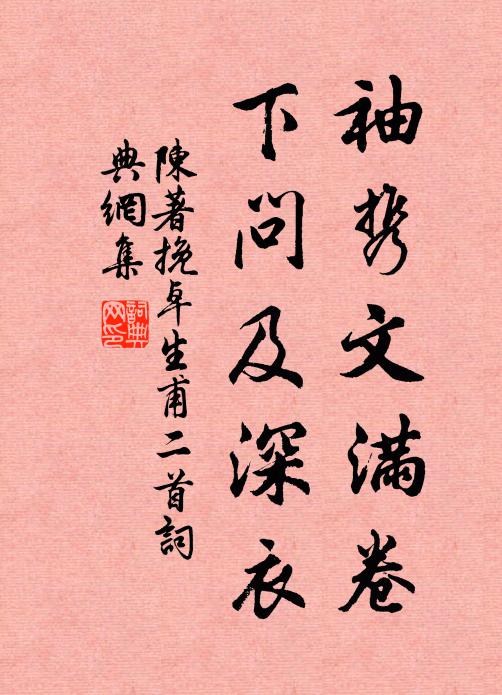 袖携文滿卷
下問及深衣
陳著挽卓生甫二首詞
典網集
詞典
网印